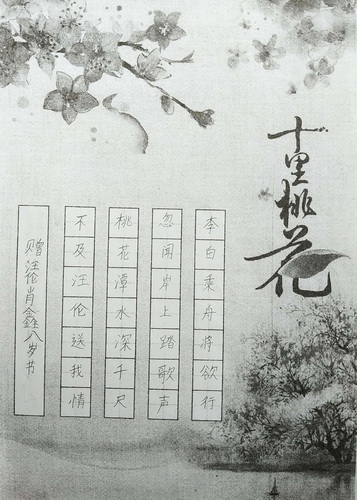 十里桃花
李白乘舟将欲行
忽闻岸上踏歌声
桃花潭水深千尺
不及汪伦送我情
赠汪伦肖鑫八岁书